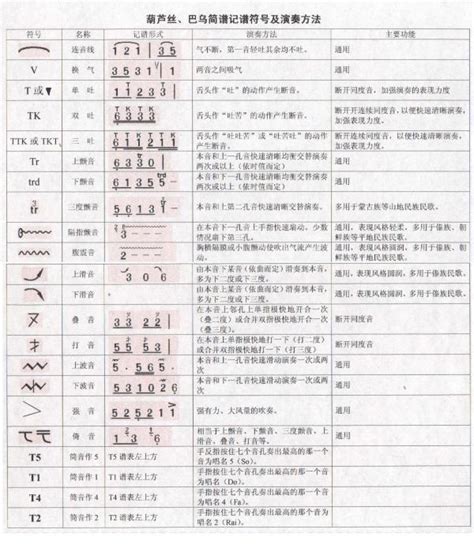 葫芦丝、巴乌简谱记谱符号及演奏方法
符号 名称 记谱形式 演奏方法 主要功能
连音线 1 2 1 | 3 5 气不断，第一音轻吐其余均不吐。 通用
V 换气 3 5 3 1 | 1 两音之间吸气 通用
T或▼ 单吐 舌头作“吐”的动作产生断音。 断开同度音，加强演奏的表现力度
TK 双吐 6 3 3 0 | 舌头作“吐苦”的动作产生断音。 断开开连续同度音，以便快速清晰演奏，
加强表现力度。
TTK 或 TKT 三吐 舌头作“吐吐苦”或“吐苦吐”的动作
产生断音。
断开连续同度音，以便快速清晰演奏，
加强表现力度。
Tr 上颤音 6 3 3 0 | 本音和上一孔音快速清晰均衡交替演奏
两次或以上（依时值而定）
通用
trd 下颤音 6 3 1 5 - 本音和下一孔音快速清晰均衡交替演奏
两次或以上（依时值而定）
通用
tr 三度颤音 6 3 1 5 - 本音和上第二孔音快速清晰交替演奏。 多用于蒙古族等山地民族民歌。
隔指颤音 3 - - - 在本音下一孔音上手指快速扇动，少数
情况扇下第三孔。
通用、表现风格轻柔，多用于傣族、朝
鲜族等平地民族民歌。
腹震音 胸横隔膜或小腹颤动使吹出气流产生波
动。
通用、表现风格圆润，多用于傣族、朝
鲜族等平地民族民歌。
上滑音 3 0 6 由本音下某音（依曲而定）滑奏到本音，
多为下二度或下三度。
通用，表现风格圆润，多用于傣族民歌。
下滑音 由本音上某音（依曲而定）滑奏到本音，
多为上二度或上三度。
通用
叠音 3 3 2 2 | 在本音上邻孔上单指极快地开合一次
（叠二度）或合并双指极快地开合一次
（叠三度）。
断开同度音
打音 5 5 5 3 | 在本音上单指极快地打一下（打二度）
或合并双指极快地打一下（打三度）
断开同度音
上波音 5 1 5 2 | 本音和上一孔音快速清晰演奏一次或两
次
通用
下波音 5 3 1 0 6 本音和下一孔音快速清晰演奏一次或两次
通用
强音 5 2 5 2 1 1 | 强有力、大风量的吹奏。 通用
倚音 1 6 1 3 - 相当于上颤音、下颤音、三度颤音、上
滑音、叠音、打音等。
通用
T5 筒音作 5 T5 谱表左上方 手反指按住七个音孔奏出最高的那一个
音为唱名 5（So）。
T1 筒音作 1 T1 谱表左上方 手指按住七个音孔奏出最高的那一个音
为唱名 1（Do）。
T4 筒音作 4 T4 谱表左上方 手指按住七个音孔奏出最高的那一个音
为唱名 4（Fa）。
T2 筒音作 2 T2 谱表左上方 手指按住七个音孔奏出最高的那一个音
为唱名 2（Rai）。